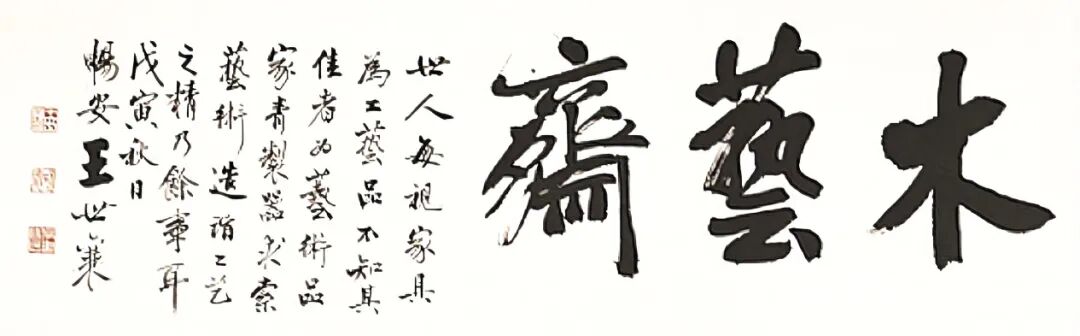 木藝齋
世人每視家具
為工藝品不知其
佳者為藝術品
家青製器求索
藝術造詣工藝
之精乃餘事耳
戊寅秋日
暢安王世襄